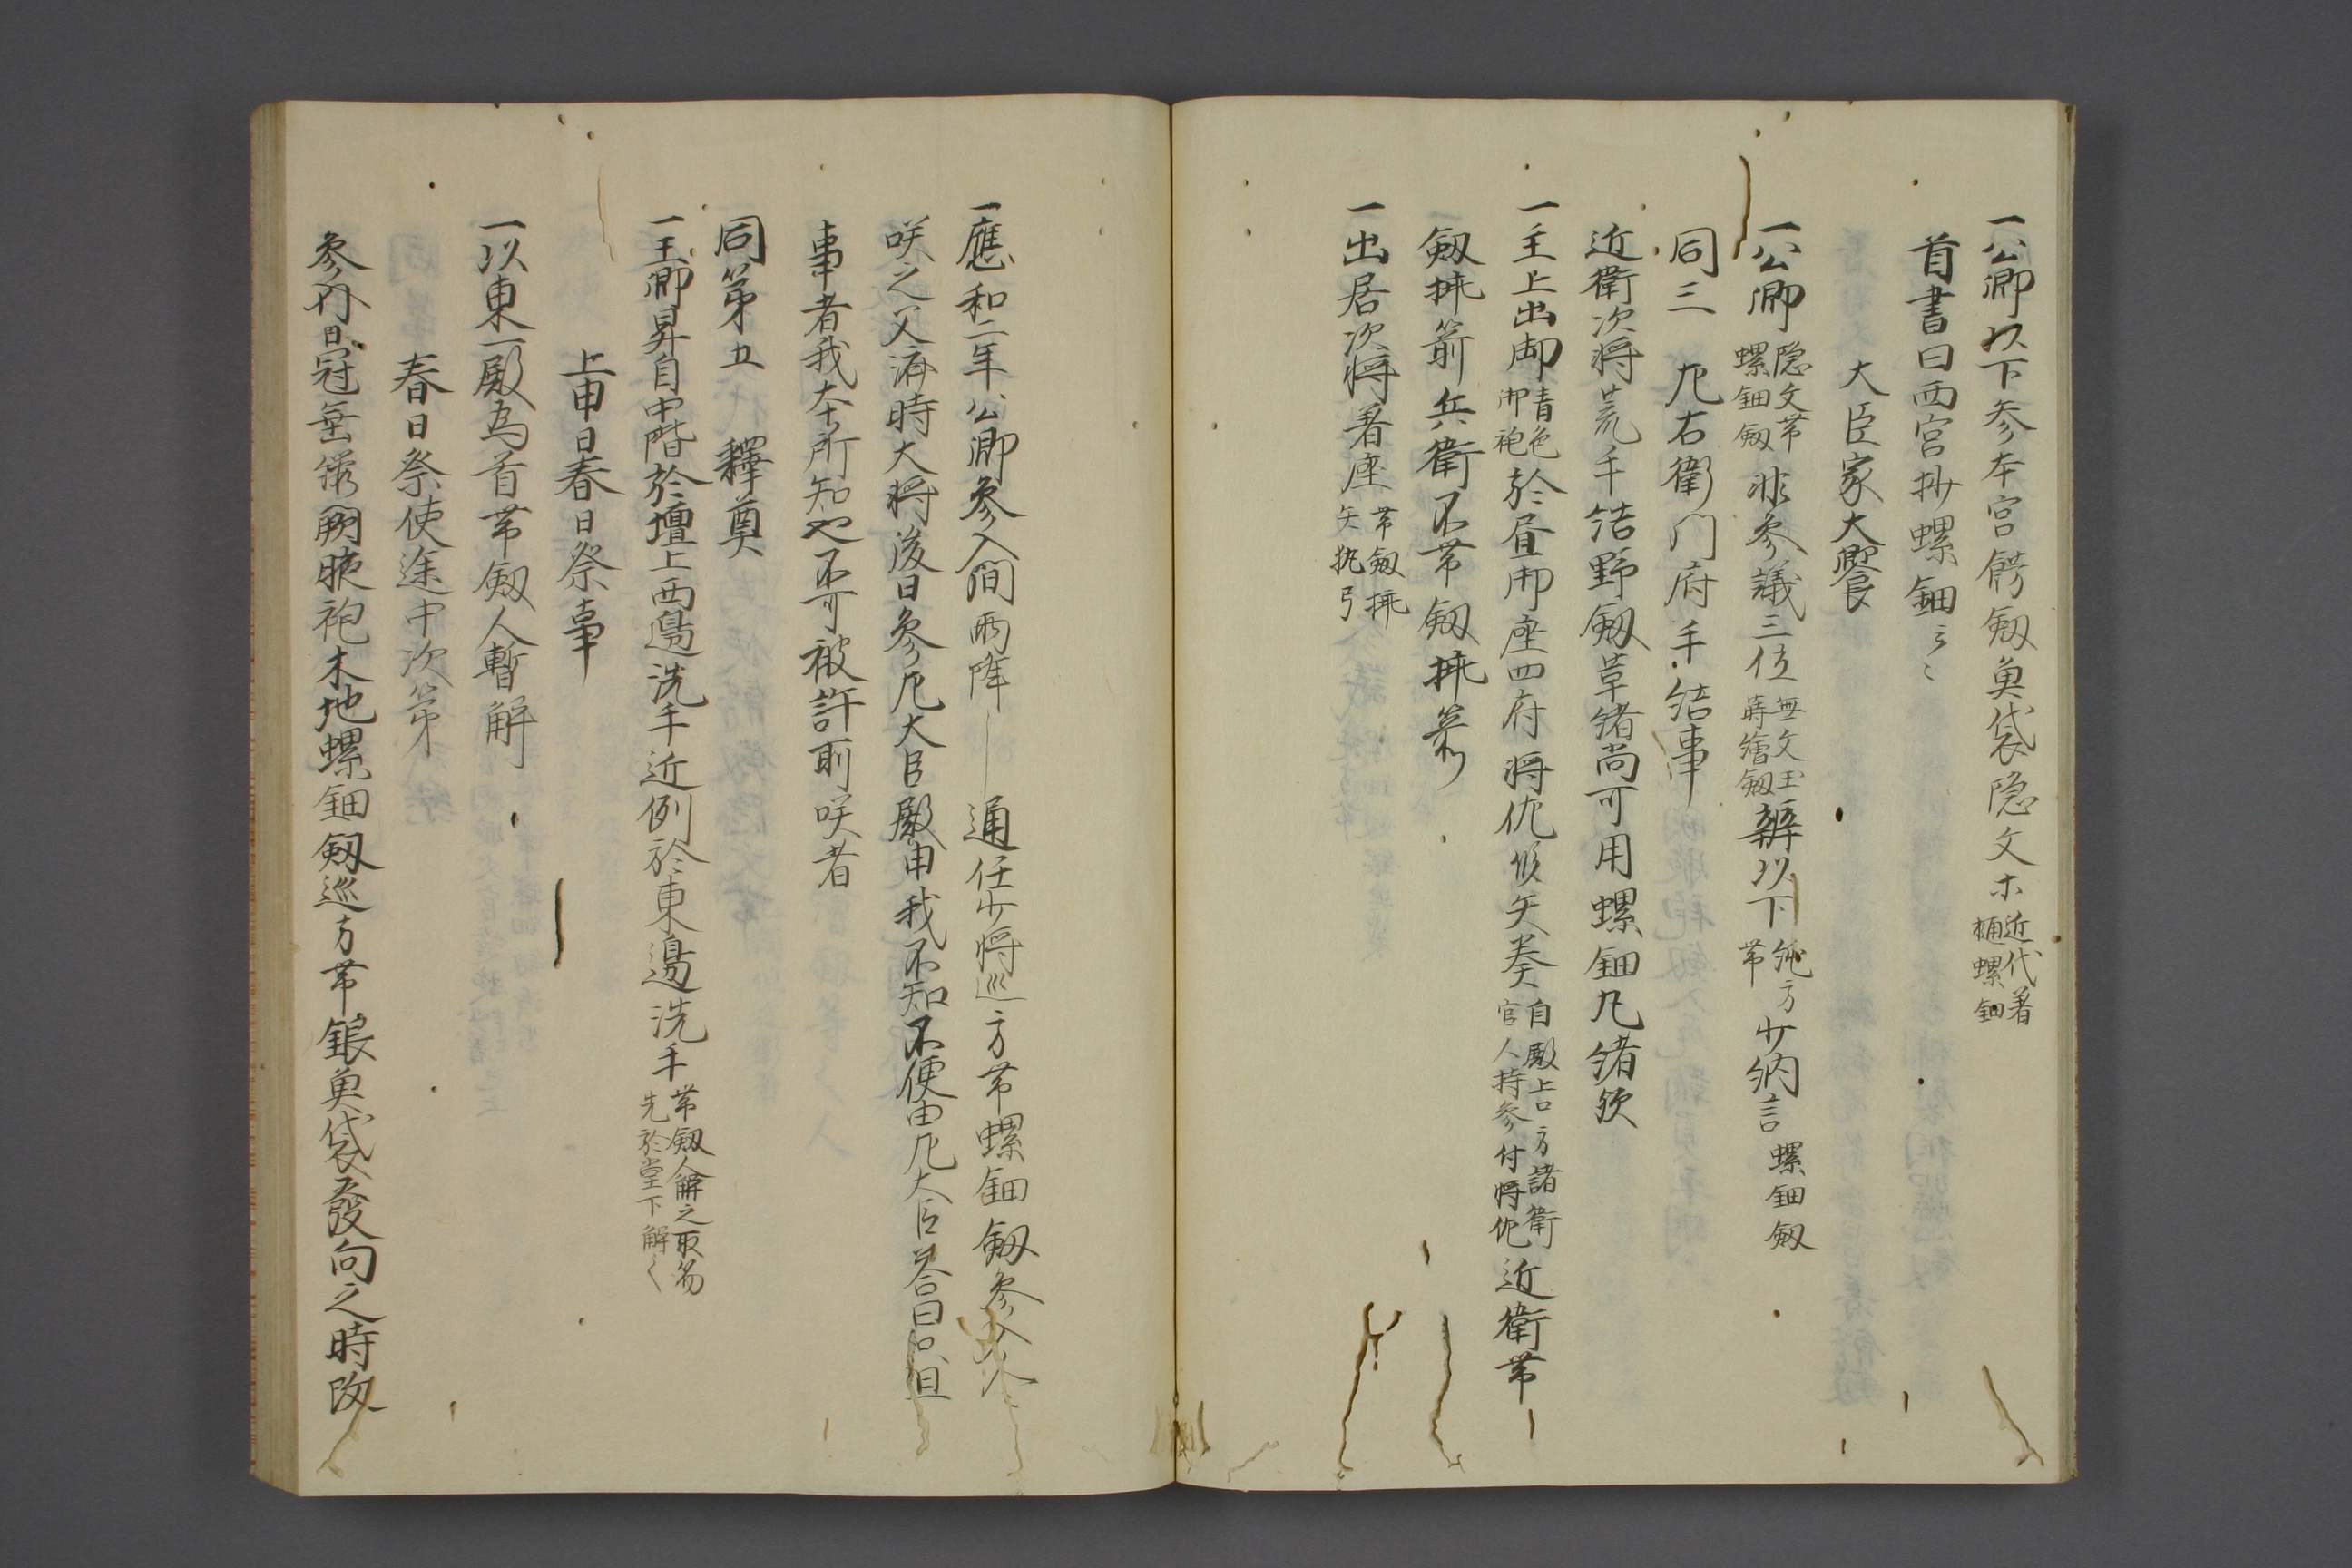 一公卿以下参本宮餝剱魚袋隠文ホ近代着樋螺鈿
首書曰西宮抄螺鈿云々
大臣家大饗
一公卿隠文帯螺鈿剱非参議三位無文玉蒔繪剱辨以下純方帯少納言螺鈿剱
同三 左右衛門府手結事
近衛次将荒手結野剱草緒尚可用螺鈿凡緒欤
一主上出御青色御袍於昼御座四府将佐候矢奏自殿上口方諸衛官人持参付将佐近衛帯
剱挾箭兵衛不帯剱挾箭
一出居次将着座帯剱挾矢執弓
一應和二年公卿参入間雨降―通任少将巡方帯螺鈿剱参入人
咲之又済時大将後日参左大臣殿申我不知不便由左大臣答曰
事者我本所知也不可被許前咲者
同第五 釋奠
一王卿昇自中階於壇上西邊洗手近例於東邊洗手帯剱人解之取笏先於堂下解之
上申日春日祭事
一以東一殿為首帯剱人暫解
春日祭使途中次第
参内日冠垂纓闕腋袍木地螺鈿剱巡方帯銀魚袋發向之時改